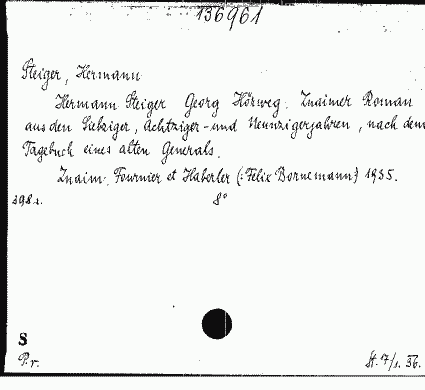 136961
Steiger, Hermann
Hermann Steiger Georg Hörweg. Znaimer Roman
aus den Siebziger, Achtziger- und Neunzigerjahren, nach dem
Tagebuch eines alten Generals.
Znaim, Fournier et Haberler (: Felix Bornemann) 1935.
398 s. 8°
S
P. r. St. 7/1. 36.